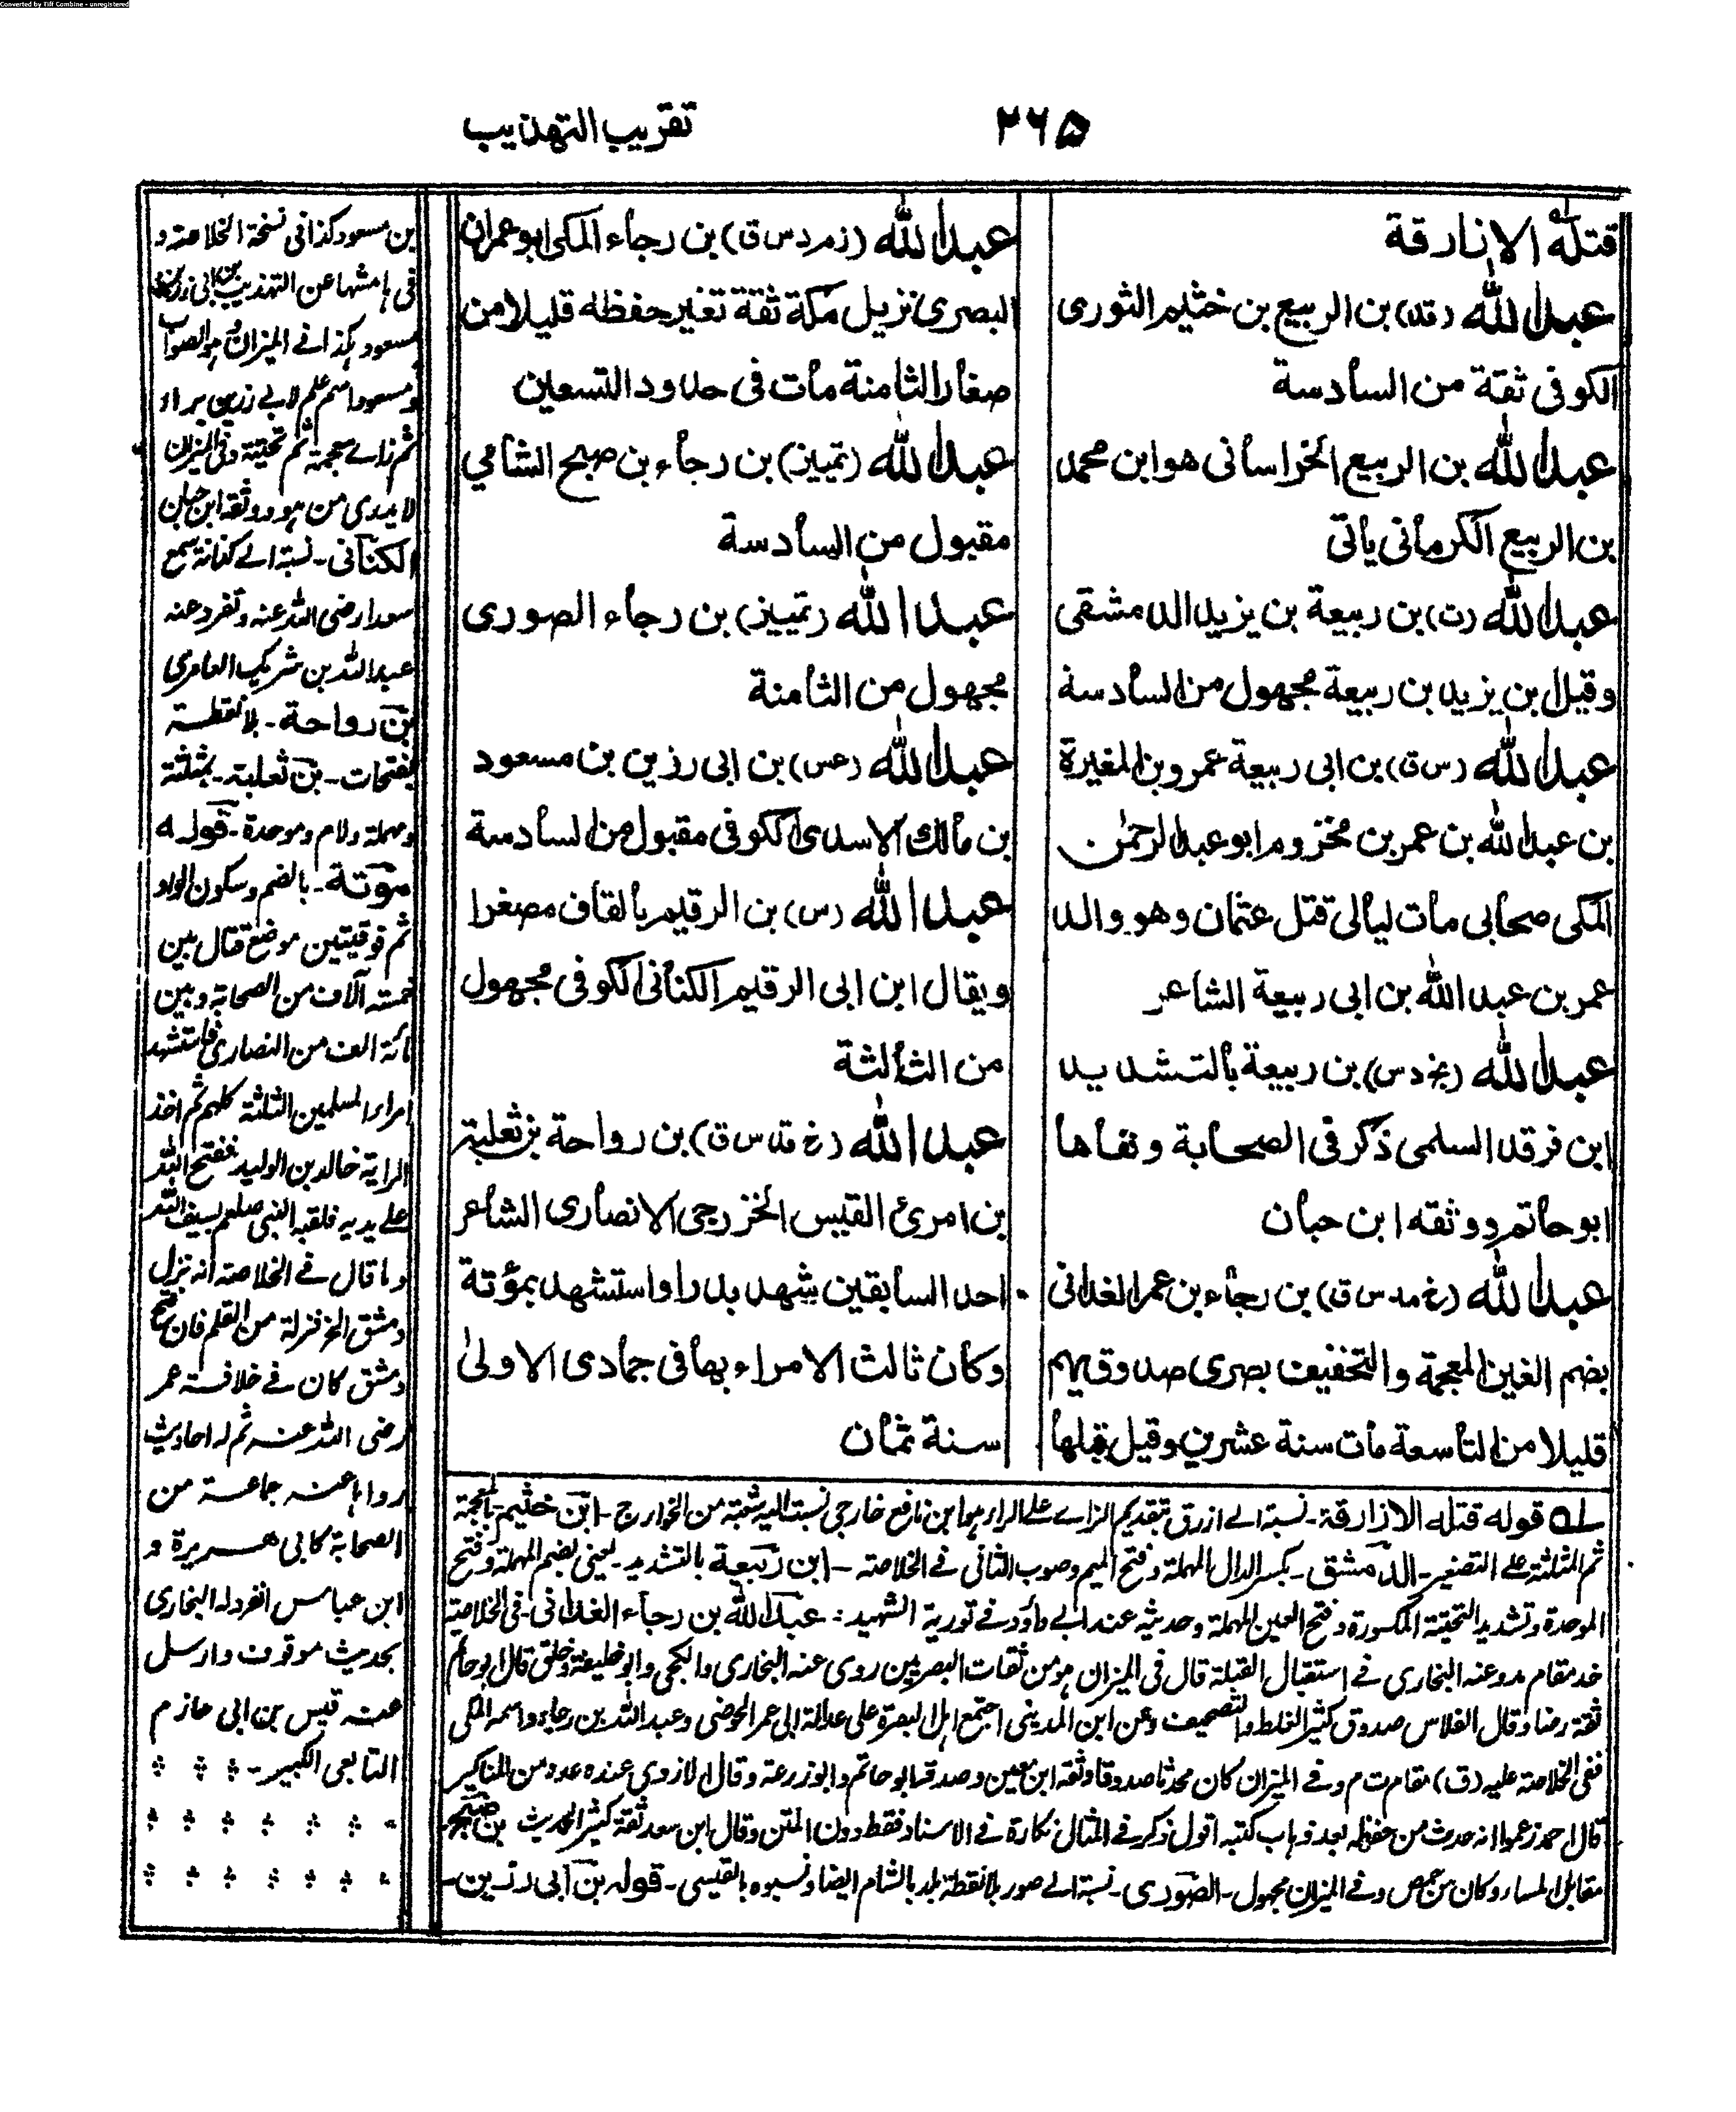 Converted by Tiff Combine - unregistered
٢٦٥
تقريب التهذيب
قتله الازارقة
عبد الله (قد) بن الربيع بن خثيم الثورى
الكوفى ثقة من السادسة
عبد الله بن الربيع الخراسانى هو ابن محمد
بن الربيع الكرمانى يأتى
عبد الله (ت) بن ربيعة بن يزيد الدمشقى
وقيل بن يزيد بن ربيعة مجهول من السادسة
عبد الله (س ق) بن ابى ربيعة عمرو بن المغيرة
بن عبد الله بن عمر بن مخزوم ابو عبد الرحمٰن
المكى صحابى مات ليالى قتل عثمان وهو والد
عمر بن عبد الله بن ابى ربيعة الشاعر
عبد الله (بخ د س) بن ربيعة بالتشديد
ابن فرقد السلمى ذكر فى الصحابة ونفاها
ابو حاتم ووثقه ابن حبان
عبد الله (خ مد س ق) بن رجاء بن عمر الغدانى
بضم الغين المعجمة والتخفيف بصرى صدوق يهم
قليلا من التاسعة مات سنة عشرين وقيل قبلها
عبد الله (ز م د س ق) بن رجاء المكى ابو عمران
البصرى نزيل مكة ثقة تغير حفظه قليلا من
صغار الثامنة مات فى حدود التسعين
عبد الله (تمييز) بن رجاء بن صبيح الشامي
مقبول من السادسة
عبد الله (تمييز) بن رجاء الصورى
مجهول من الثامنة
عبد الله (عس) بن ابى رزين بن مسعود
بن مالك الاسدى الكوفى مقبول من السادسة
عبد الله (س) بن الرقيم بالقاف مصغرا
ويقال ابن ابى الرقيم الكنانى الكوفى مجهول
من الثالثة
عبد الله (خ قد س ق) بن رواحة بن ثعلبة
بن امرئ القيس الخزرجى الانصارى الشاعر
احد السابقين شهد بدرا واستشهد بمؤتة
وكان ثالث الامراء بها فى جمادى الاولىٰ
سنة ثمان
له قوله قتله الازارقة ـ نسبة الے ازرق بتقديم الزاے علے الراء هو ابن نافع خارجى نسبت اليه شعبة من الخوارج ـ ابن خثيم ـ بمعجمة
ثم المثلثة علے التصغير ـ الدمشق ـ بكسر الدال المهملة وفتح الميم وصوب الثانى فے الخلاصة ـ ابن ربيعة بالتشديد ـ يعنى بضم المهملة وفتح
الموحدة وتشديد التحتية المكسورة وفتح العين المهملة وحديثه عند ابى داؤد فے تورية الشهيد : عبد الله بن رجاء الغدانى ـ فى الخلاصة
خد مقام مد وعنه البخارى فے استقبال القبلة قال فى الميزان هو من ثقات البصريين روى عنه البخارى والكجى وابو خليفة وخلق قال ابو حاتم
ثقة رضا وقال الفلاس صدوق كثير الغلط والتصحيف وعن ابن المدينى اجتمع اهل البصرة على عدالة ابى عمر الحوضى وعبد الله بن رجاء واسمه المكى
ففى الخلاصة عليه (ق) مقام ت م وفے الميزان كان محدثا صدوقا وثقه ابن معين وصدقه ابو حاتم وابو زرعة وقال الازدى عنده عدد من المناكير
قال احمد زعموا انه حدث من حفظه بعد ذهاب كتبه اقول ذكر فے المثال نكارة فے الاسناد فقط دون المتن وقال ابن سعد ثقة كثير الحديث بن صبيح
مقابل المساء وكان من حمص وفے الميزان مجهول ـ الصورى ـ نسبة الے صور بلا نقطة بلد بالشام ايضا ونسبوه بالقيسى ـ قوله بن ابى رزين ـ
بن مسعود كذا فى نسخة الخلاصة و
فى هامشها عن التهذيب بن ابى رزين
مسعود هكذا فے الميزان وهو الصواب
ومسعود اسم علم لابى رزين براء
ثم زاے معجمة ثم تحتية وفى الميزان
لا يدرى من هو ووثقه ابن حبان
الكنانى ـ نسبة الے كنانة سمع
سعدا رضى الله عنه وتفرد عنه
عبد الله بن شريك العامرى
بن رواحة ـ بلا نقطة
بفتحات ـ بن ثعلبة ـ بمثلثة
ومهملة ولام وموحدة ـ قوله
موتة ـ بالضم وسكون الواو
ثم فوقيتين موضع قتال بين
خمسة آلاف من الصحابة وبين
مائة الف من النصارى فاستشهد
امراء المسلمين الثلثة كلهم ثم اخذ
الراية خالد بن الوليد ففتح الله
علے يديه فلقبه النبى صلعم بسيف الله
وما قال فے الخلاصة انه نزل
دمشق الخ فزلة من القلم فان فتح
دمشق كان فے خلافة عمر
رضى الله عنه ثم له احاديث
رواها عنه جماعة من
الصحابة كابى هريرة و
ابن عباس انفرد له البخارى
بحديث موقوف وارسل
عنه قيس بن ابى حازم
التابعى الكبير ـ